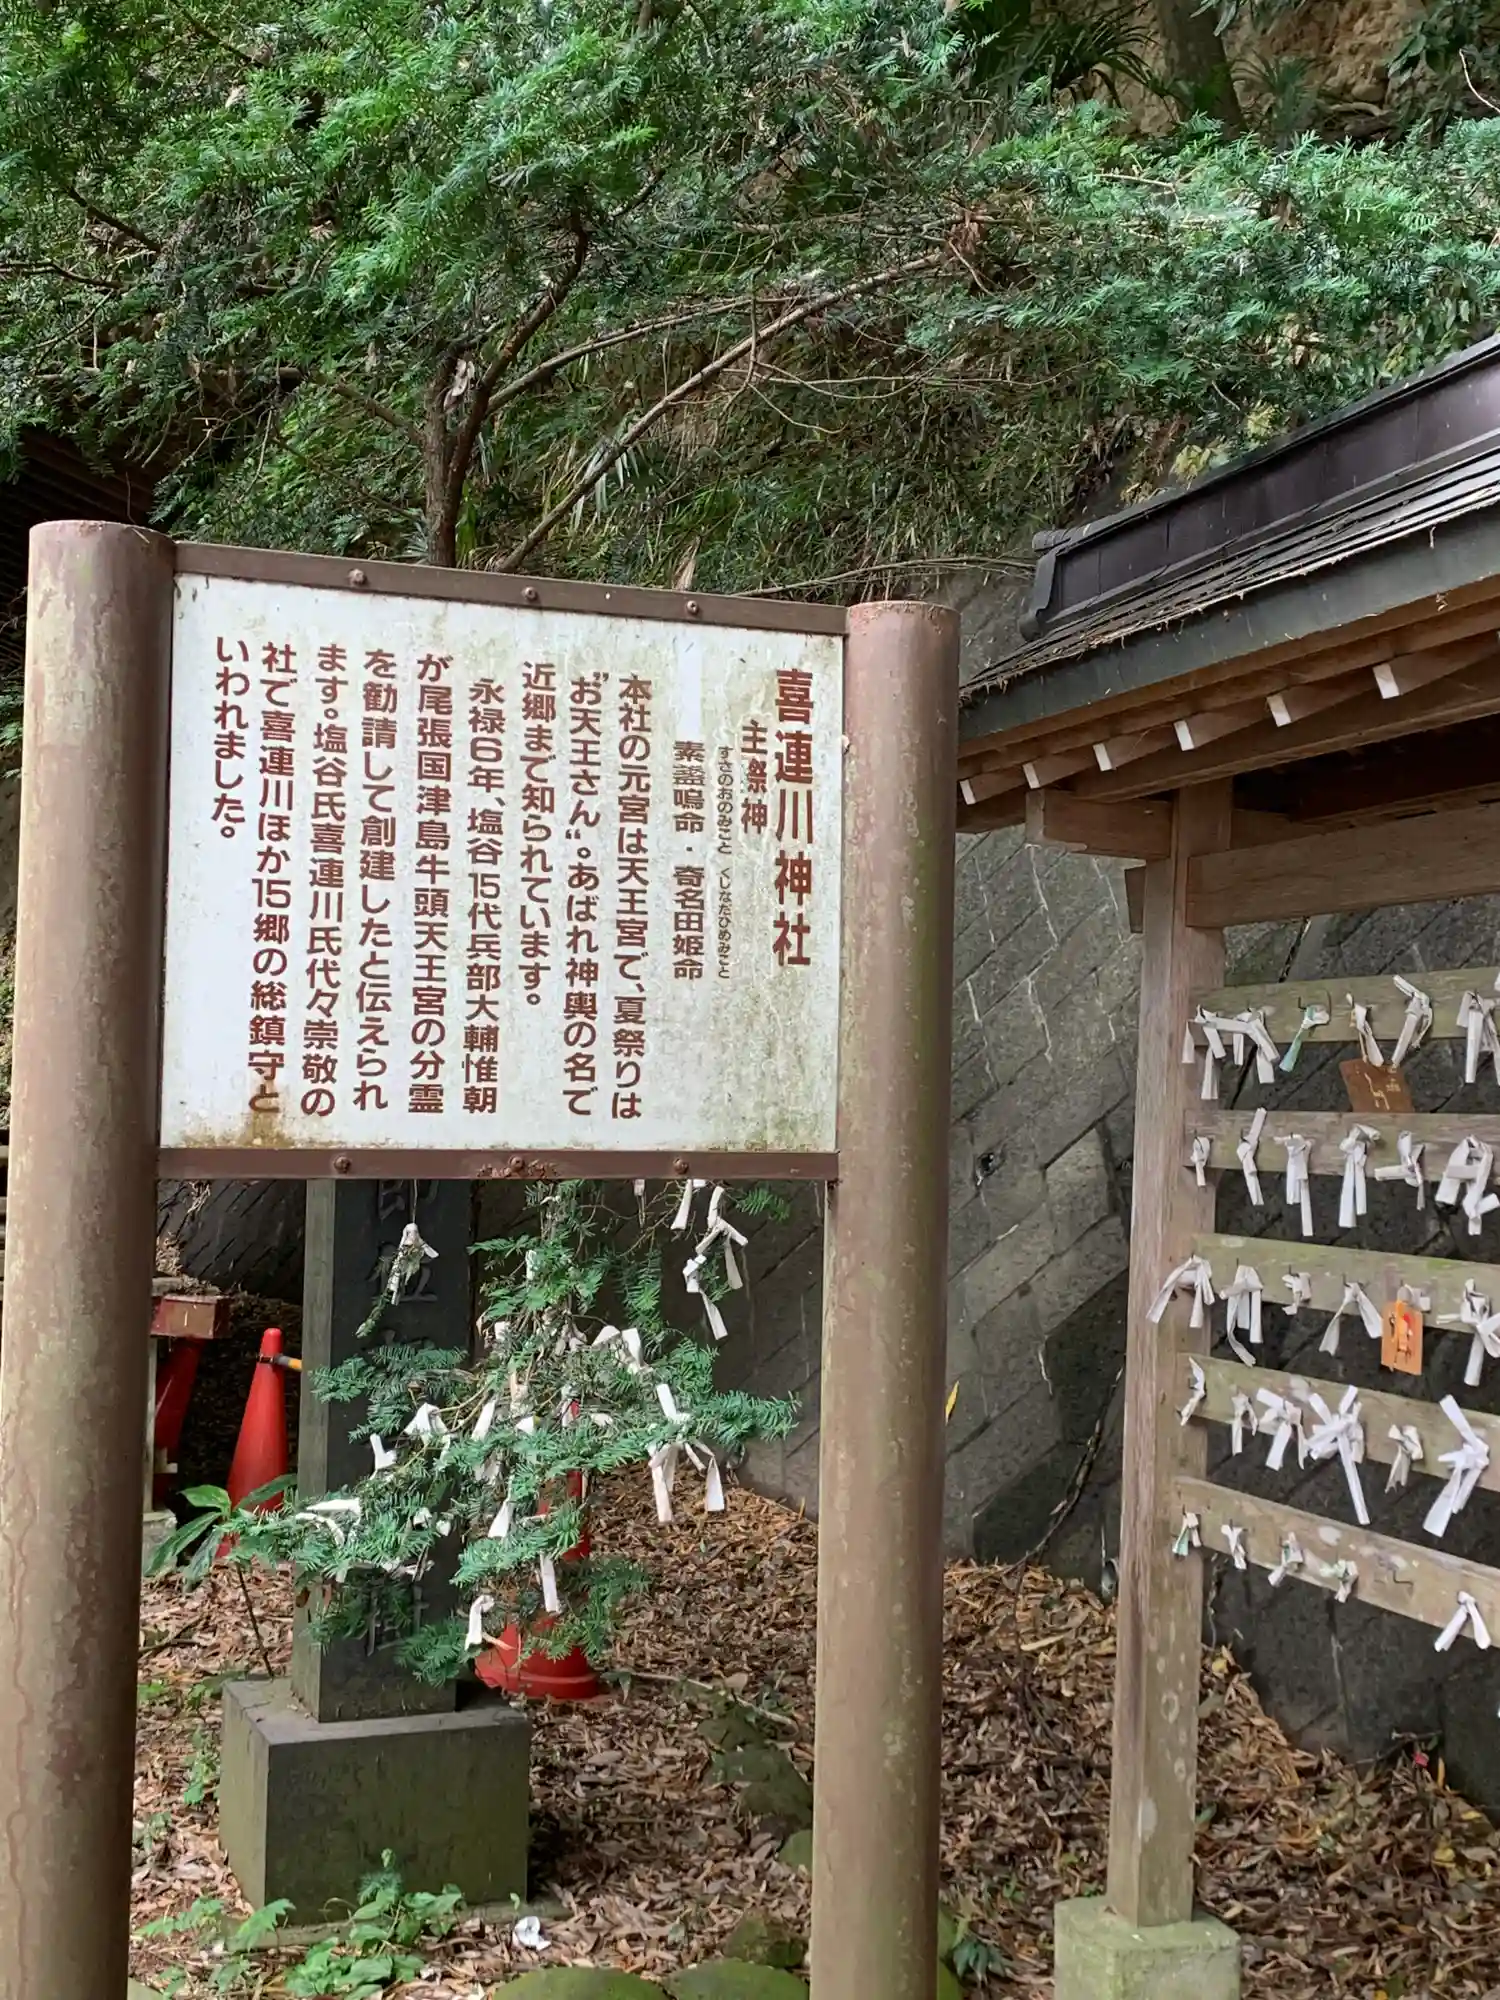 喜連川神社
主祭神
すさのおのみこと くしなだひめみこと
素盞嗚命・奇名田姫命
本社の元宮は天王宮で、夏祭りは
"お天王さん"。あばれ神輿の名で
近郷まで知られています。
永禄6年、塩谷15代兵部大輔惟朝
が尾張国津島牛頭天王宮の分霊
を勧請して創建したと伝えられ
ます。塩谷氏喜連川氏代々崇敬の
社で喜連川ほか15郷の総鎮守と
いわれました。